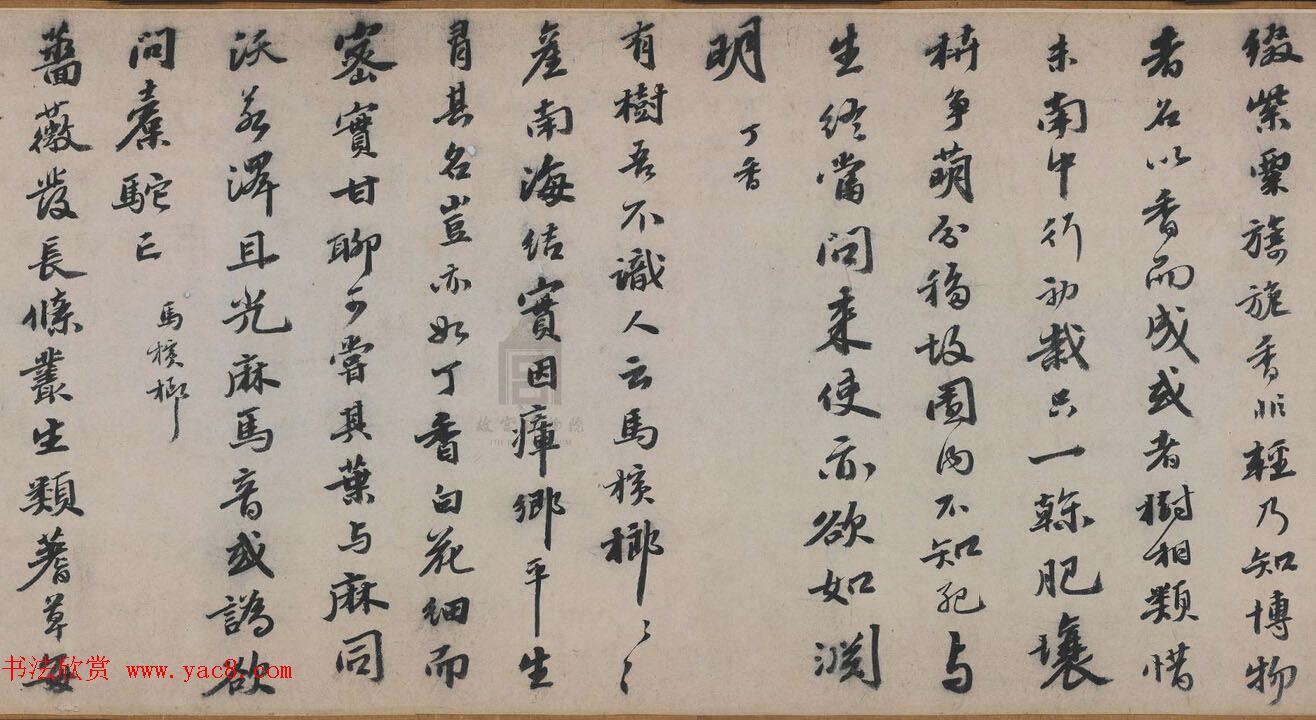 綴紫粟旖旎香非輕乃知博物
者名以香而成或者樹相類惜
未南中行初栽只一榦肥壤
枿争萌分移故園内不知死与
生終當問來使亦欲如淵
明
丁香
有樹吾不識人云馬檳榔〻〻
産南海結實因瘴鄉平生
冒其名豈亦如丁香白花細而
密實甘聊可嘗其葉与麻同
沃若澤且光麻馬音或譌欲
問橐駝亡
馬檳榔
薔薇發長條叢生類蓍草每
故宫博物院
书法欣赏 www.yac8.com